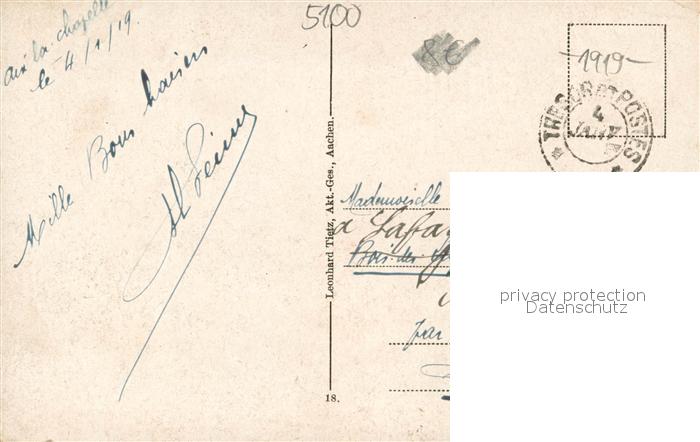 Aix la chapelle
le 4/1/19
Mille Bons baisers
5100
8€
-1919-
TRESOR ET POSTES
4
JANV
Leonhard Tietz, Akt.-Ges., Aachen.
18.
Mademoiselle
à
Bois des
par
privacy protection
Datenschutz